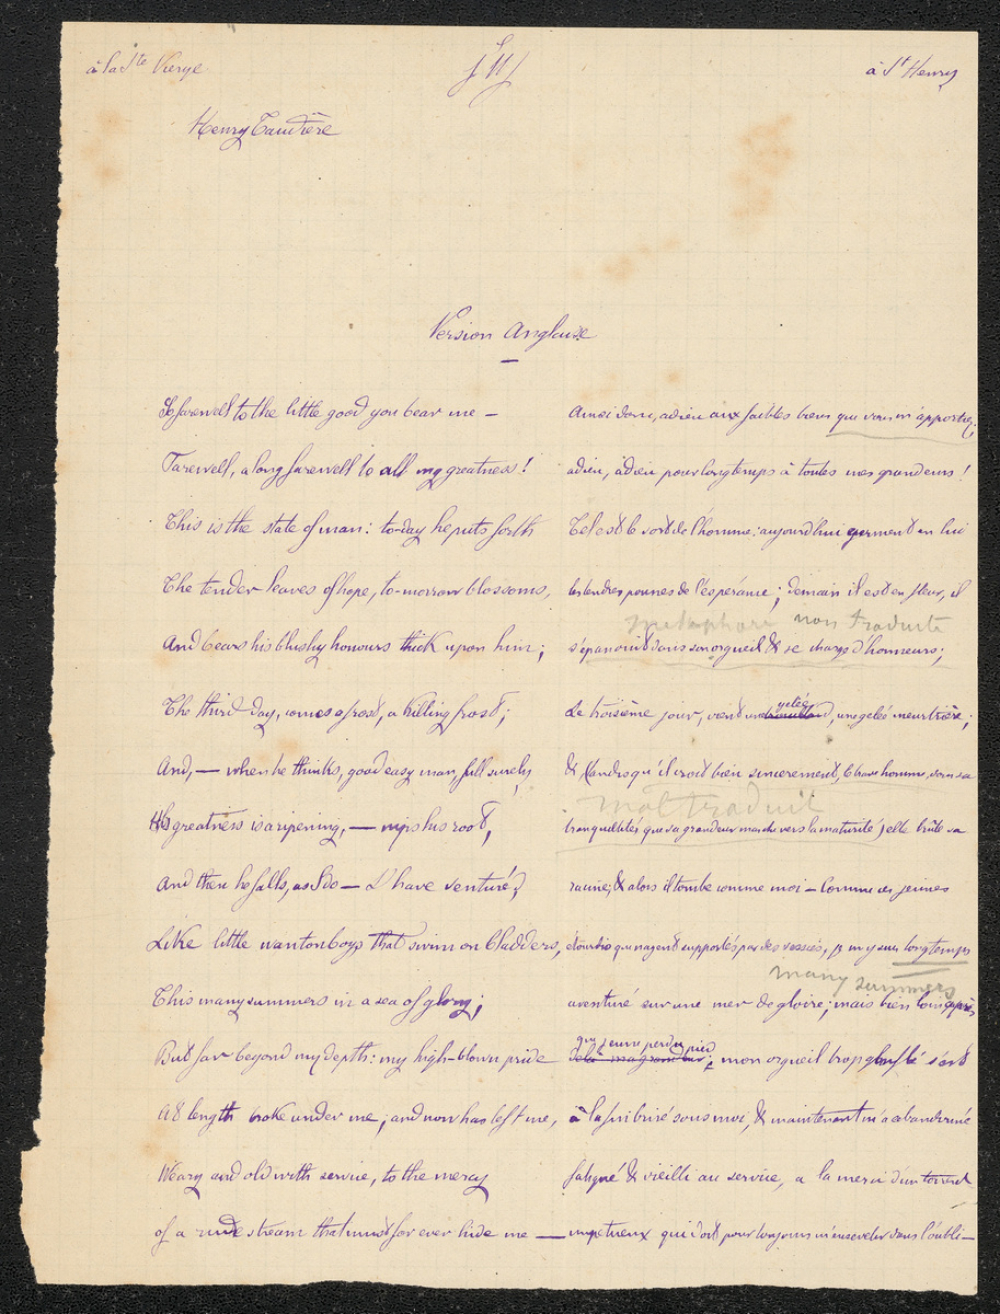 à la Ste Vierge
à St Henry
Henry Taudière
Version Anglaise
So farewell to the little good you bear me —
Farewell, a long farewell to all my greatness!
This is the state of man: to-day he puts forth
The tender leaves of hope, to-morrow blossoms,
And bears his blushy honours thick upon him;
The third day, comes a frost, a killing frost;
And, — when he thinks, good easy man, full surely
His greatness is a ripening, — nips his root,
And then he falls, as I do — I have ventur'd,
Like little wanton boys that swim on bladders,
This many summers in a sea of glory;
But far beyond my depth: my high-blown pride
At length broke under me; and now has left me,
Weary and old with service, to the mercy
of a rude stream that must for ever hide me —
Ainsi donc, adieu aux faibles biens que vous m'apportez;
adieu, adieu pour longtemps à toutes mes grandeurs!
Tel est le sort de l'homme: aujourd'hui germent en lui
les tendres pousses de l'espérance; demain il est en fleur, il
metaphore non traduite
s'épanouit dans son orgueil & se charge d'honneurs;
gelée
Le troisième jour, vient une brouillard, une gelée meurtrière;
& tandis qu'il croit bien sincerement, le brave homme, dans sa
mal traduit
tranquillités que sa grandeur marche vers la maturité) elle brûle sa
racine; & alors il tombe comme moi — Comme ces jeunes
étourdis qui nagent supportés par des vessies, je m'y suis longtemps
many summers
aventuré sur une mer de gloire; mais bien loin après
perdu pied
de la ma grandeur; mon orgueil trop gonflé s'est
à la fin brisé sous moi, & maintenant m'a abandonné
fatigué & vieilli au service, a la merci d'un torrent
impetueux qui doit pour toujours m'ensevelir dans l'oubli —